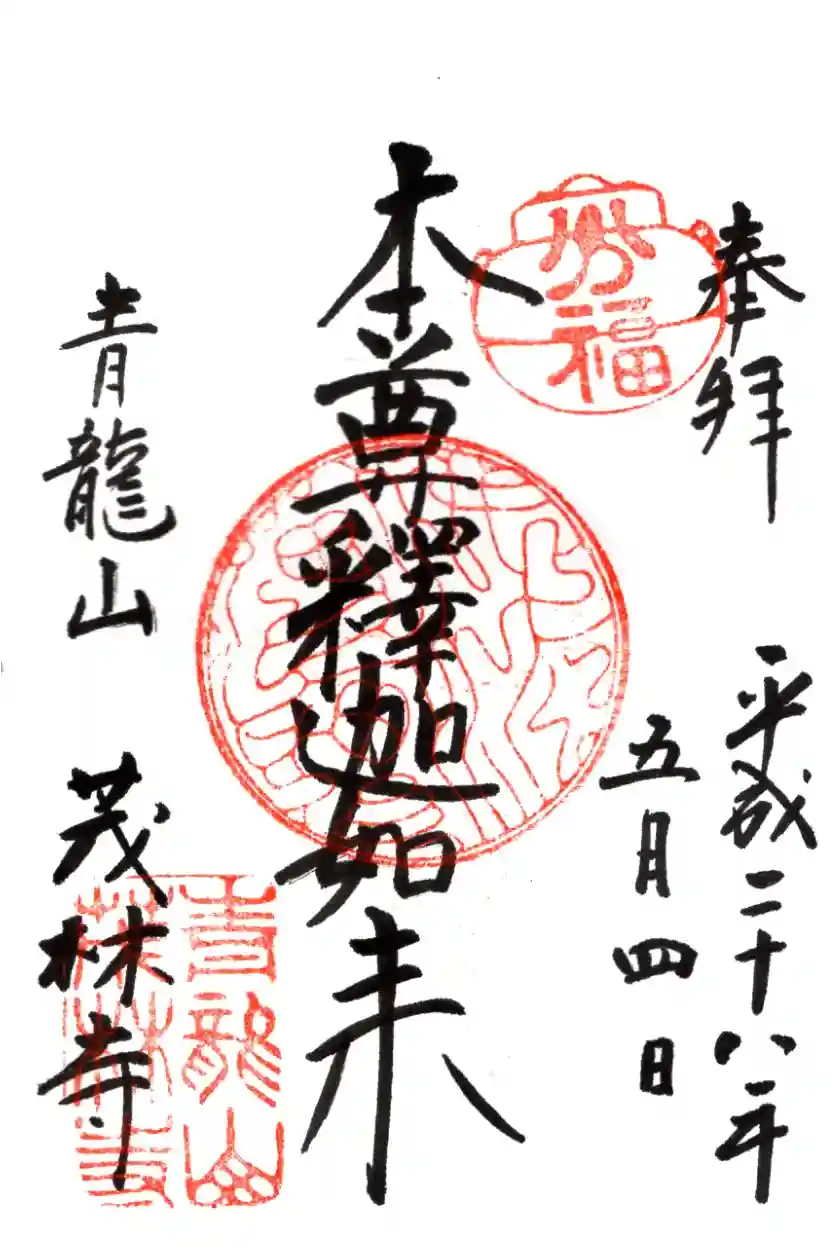 奉拜
平成二十八年
五月四日
分福
本尊釋迦如来
青龍山
茂林寺
青龍山
茂林寺